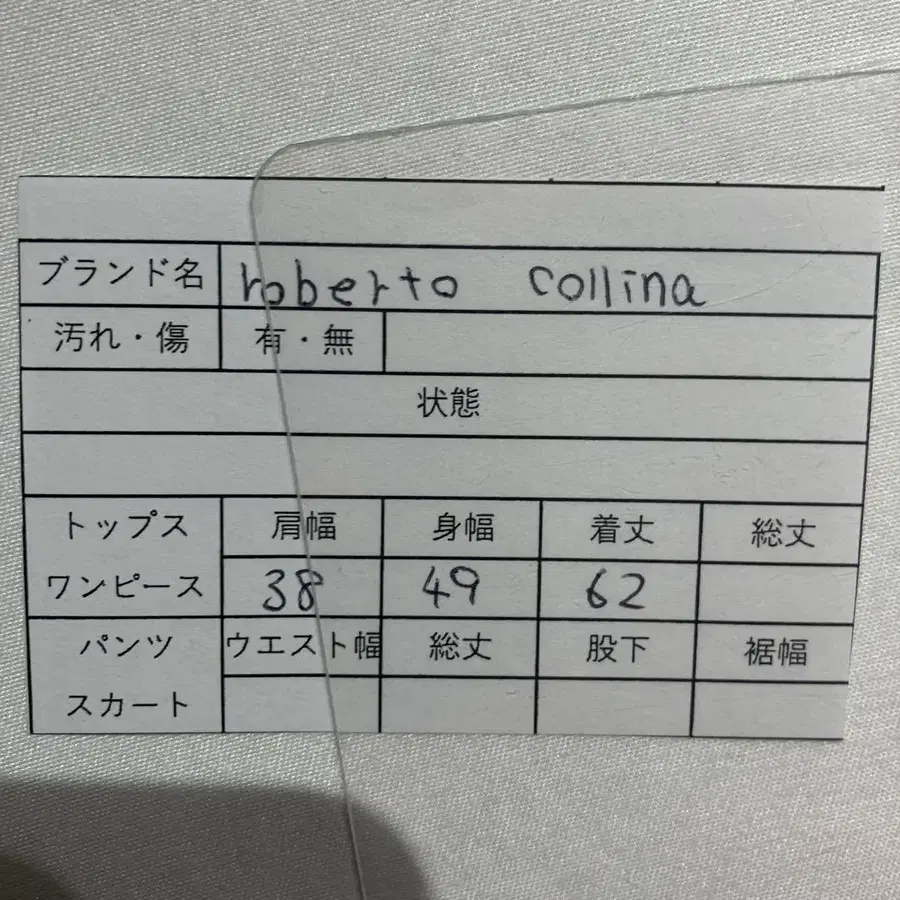 ブランド名 roberto collina
汚れ・傷 有・無
状態
トップス 肩幅 身幅 着丈 総丈
ワンピース 38 49 62
パンツ ウエスト幅 総丈 股下 裾幅
スカート